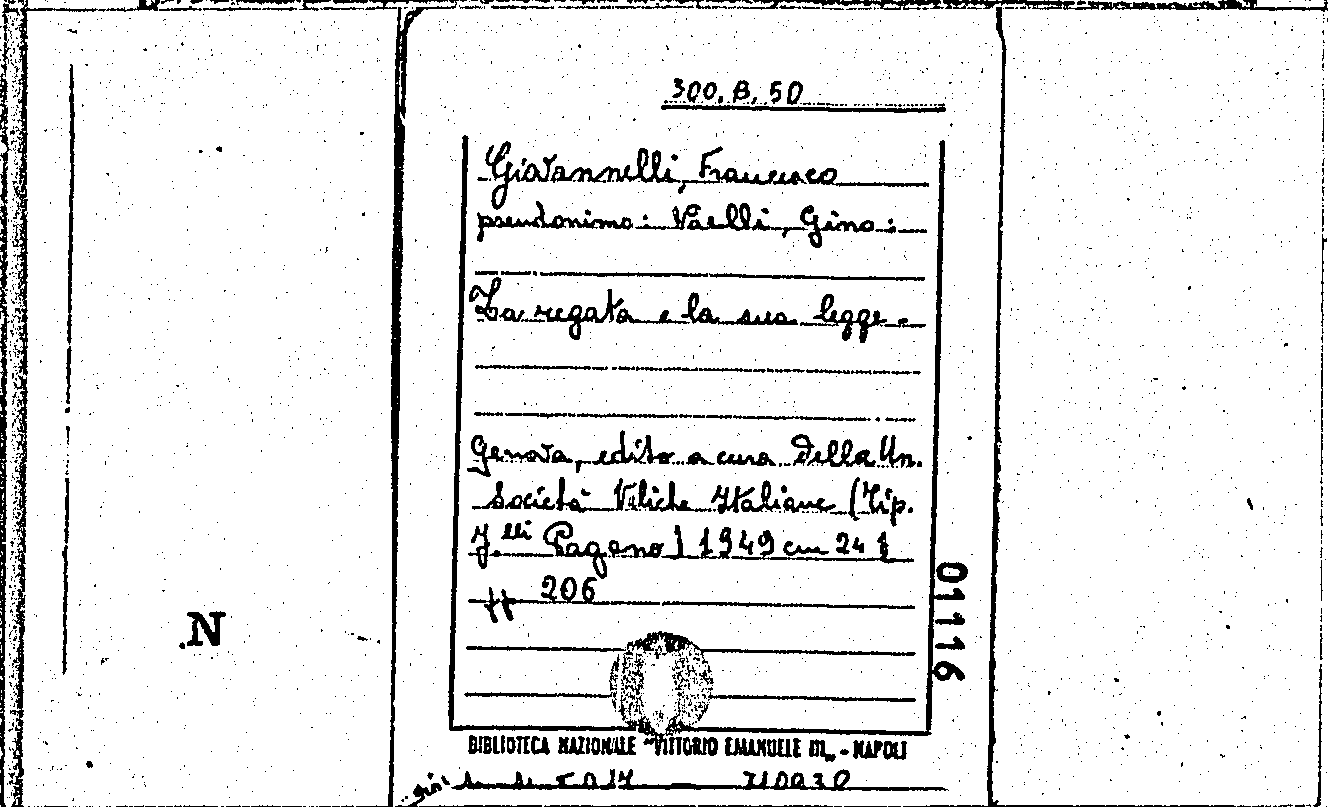 300. B. 50
Giovannelli, Francesco
pseudonimo: Vaelli, Gino:
La regata e la sua legge.
Genova, edito a cura della Un.
Società Veliche Italiane (Tip.
F.lli Pagano) 1949 cm 24
pp 206
01116
N
BIBLIOTECA NAZIONALE "VITTORIO EMANUELE III„ - NAPOLI